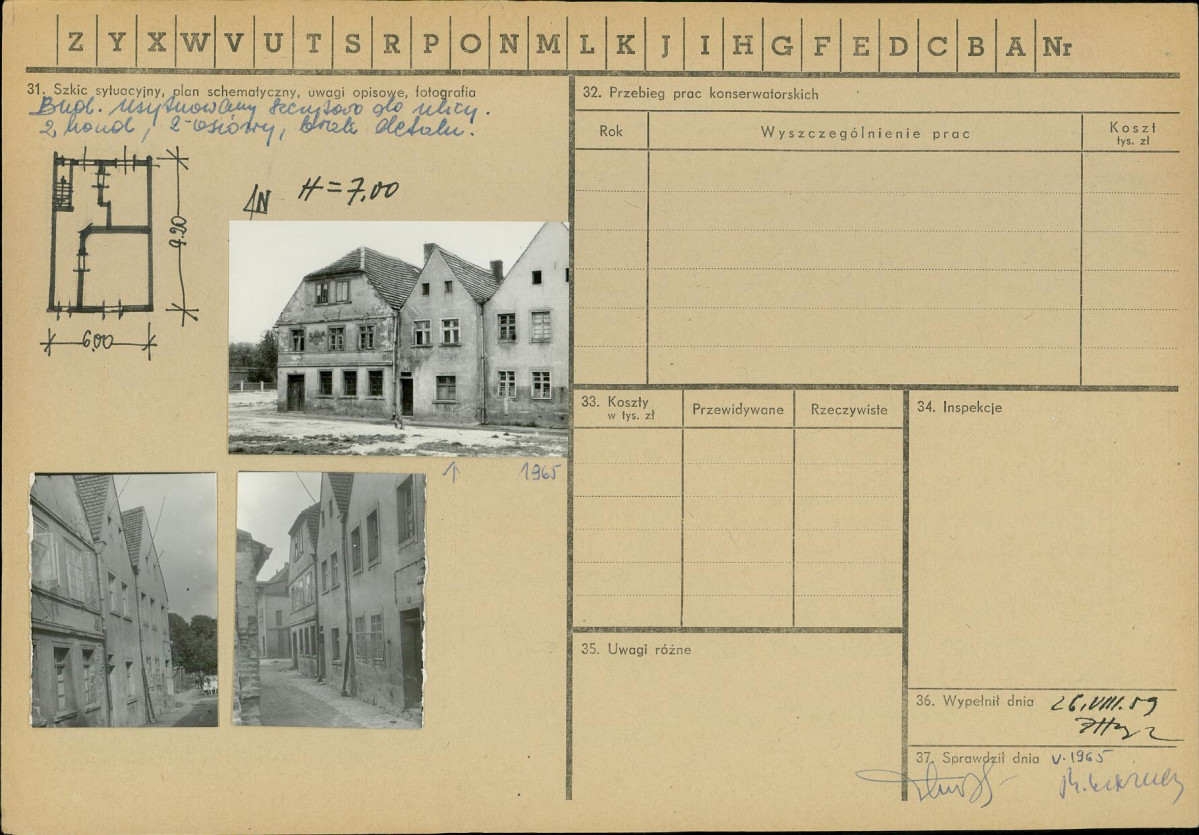 Z Y X W V U T S R P O N M L K J I H G F E D C B A Nr
31. Szkic sytuacyjny, plan schematyczny, uwagi opisowe, fotografia
Bud. usytuowany szczytowo do ulicy.
2 kond, 2-osiowy, brak detalu.
N H = 7,00
9.20
6,00
1965
32. Przebieg prac konserwatorskich
Rok Wyszczególnienie prac Koszt
tys. zł
33. Koszty
w tys. zł
Przewidywane Rzeczywiste
34. Inspekcje
35. Uwagi różne
36. Wypełnił dnia 26.VIII.59
37. Sprawdził dnia V.1965